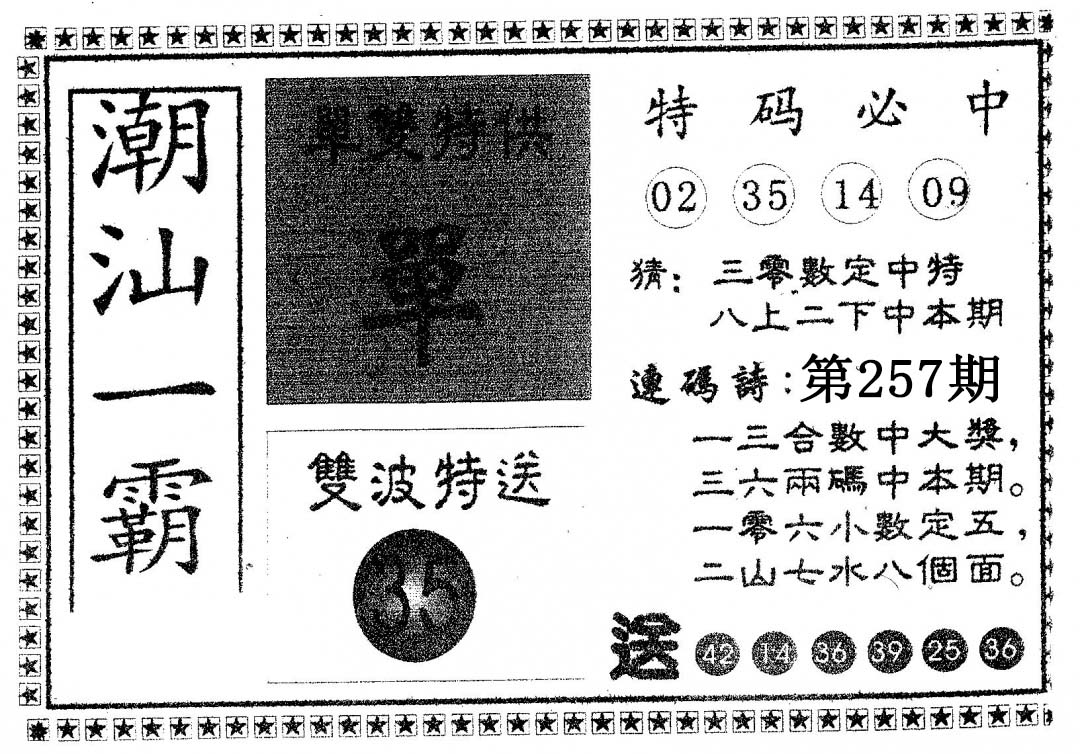 潮汕一霸
單雙特供
單
雙波特送
35
特码必中
02 35 14 09
猜：三零數定中特
八上二下中本期
連碼詩：第257期
一三合數中大獎，
三六兩碼中本期。
一零六小數定五，
二山七水八個面。
送 42 14 36 39 25 36